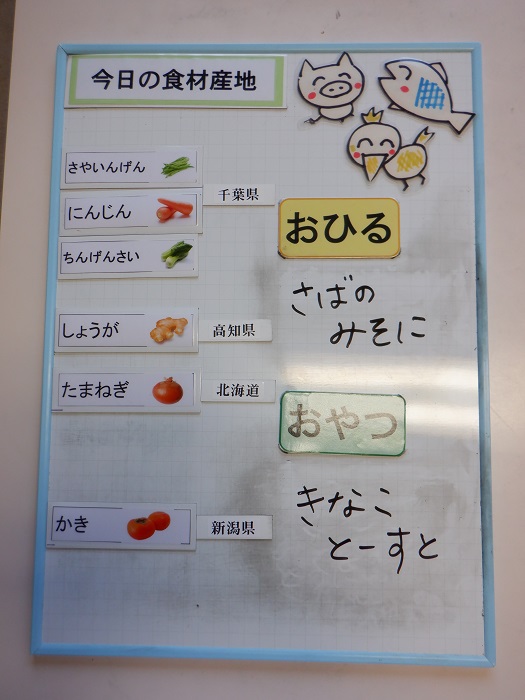 今日の食材産地
さやいんげん
にんじん
千葉県
ちんげんさい
しょうが
高知県
たまねぎ
北海道
かき
新潟県
おひる
さばの
みそに
おやつ
きなこ
とーすと